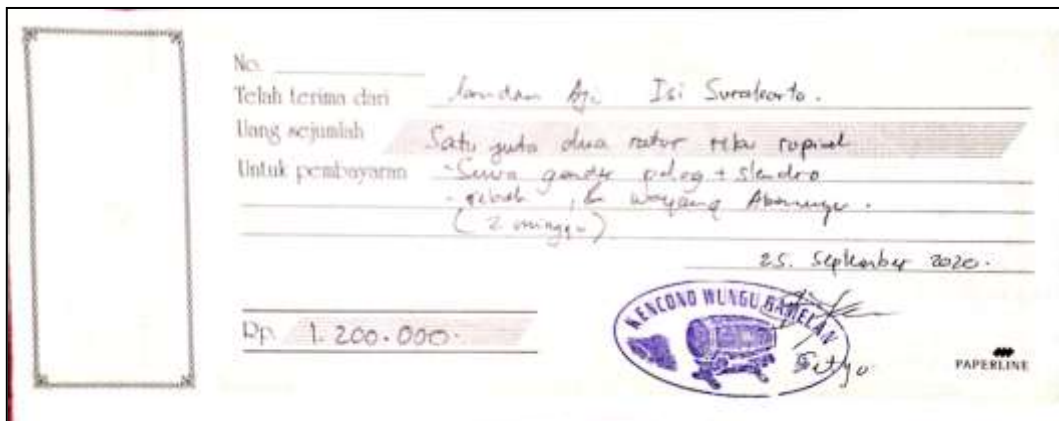 No.
Telah terima dari Isi Surakarta.
Uang sejumlah Satu juta dua ratus ribu rupiah
Untuk pembayaran - Sewa gender pelog + slendro
- rebab, & wayang
(2 minggu)
25. September 2020.
Rp. 1.200.000.
KENCONO WUNGU GAMELAN
Setyo
PAPERLINE